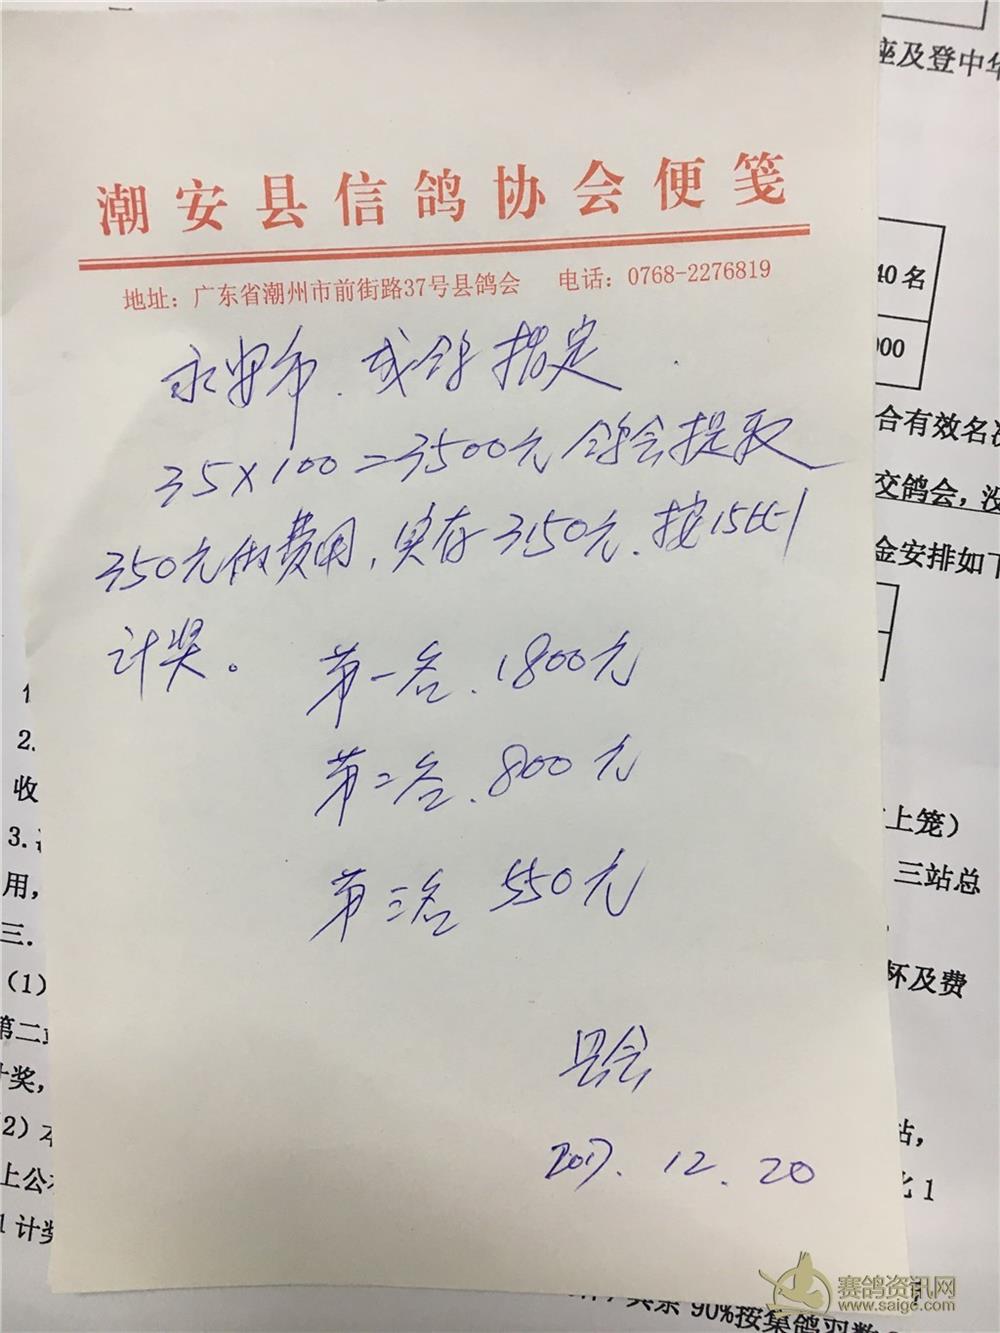 座及登中华
潮安县信鸽协会便笺
地址：广东省潮州市前街路37号县鸽会 电话：0768-2276819
40名
000
永安市.成鸽指定
35×100=3500元鸽会提取
合有效名次
交鸽会，没
350元做费用,实存3150元.按15比1
金安排如下
计奖。
第一名.1800元
2.
第二名.800元
收
上笼）
3.
用，
第三名 550元
三站总
三.
（1）
杯及费
第二
县会
计奖，
2）本
站，
2017.12.20
上公
比1
1计奖
赛鸽资讯网
www.saige.com
其余90%按集鸽羽数